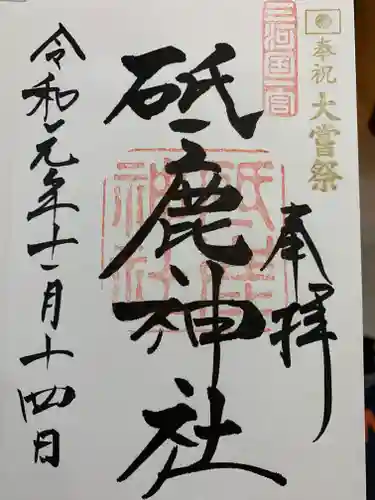 奉祝 大嘗祭
三河国一宮
奉拝
砥鹿神社
砥鹿神社
令和元年十一月十四日